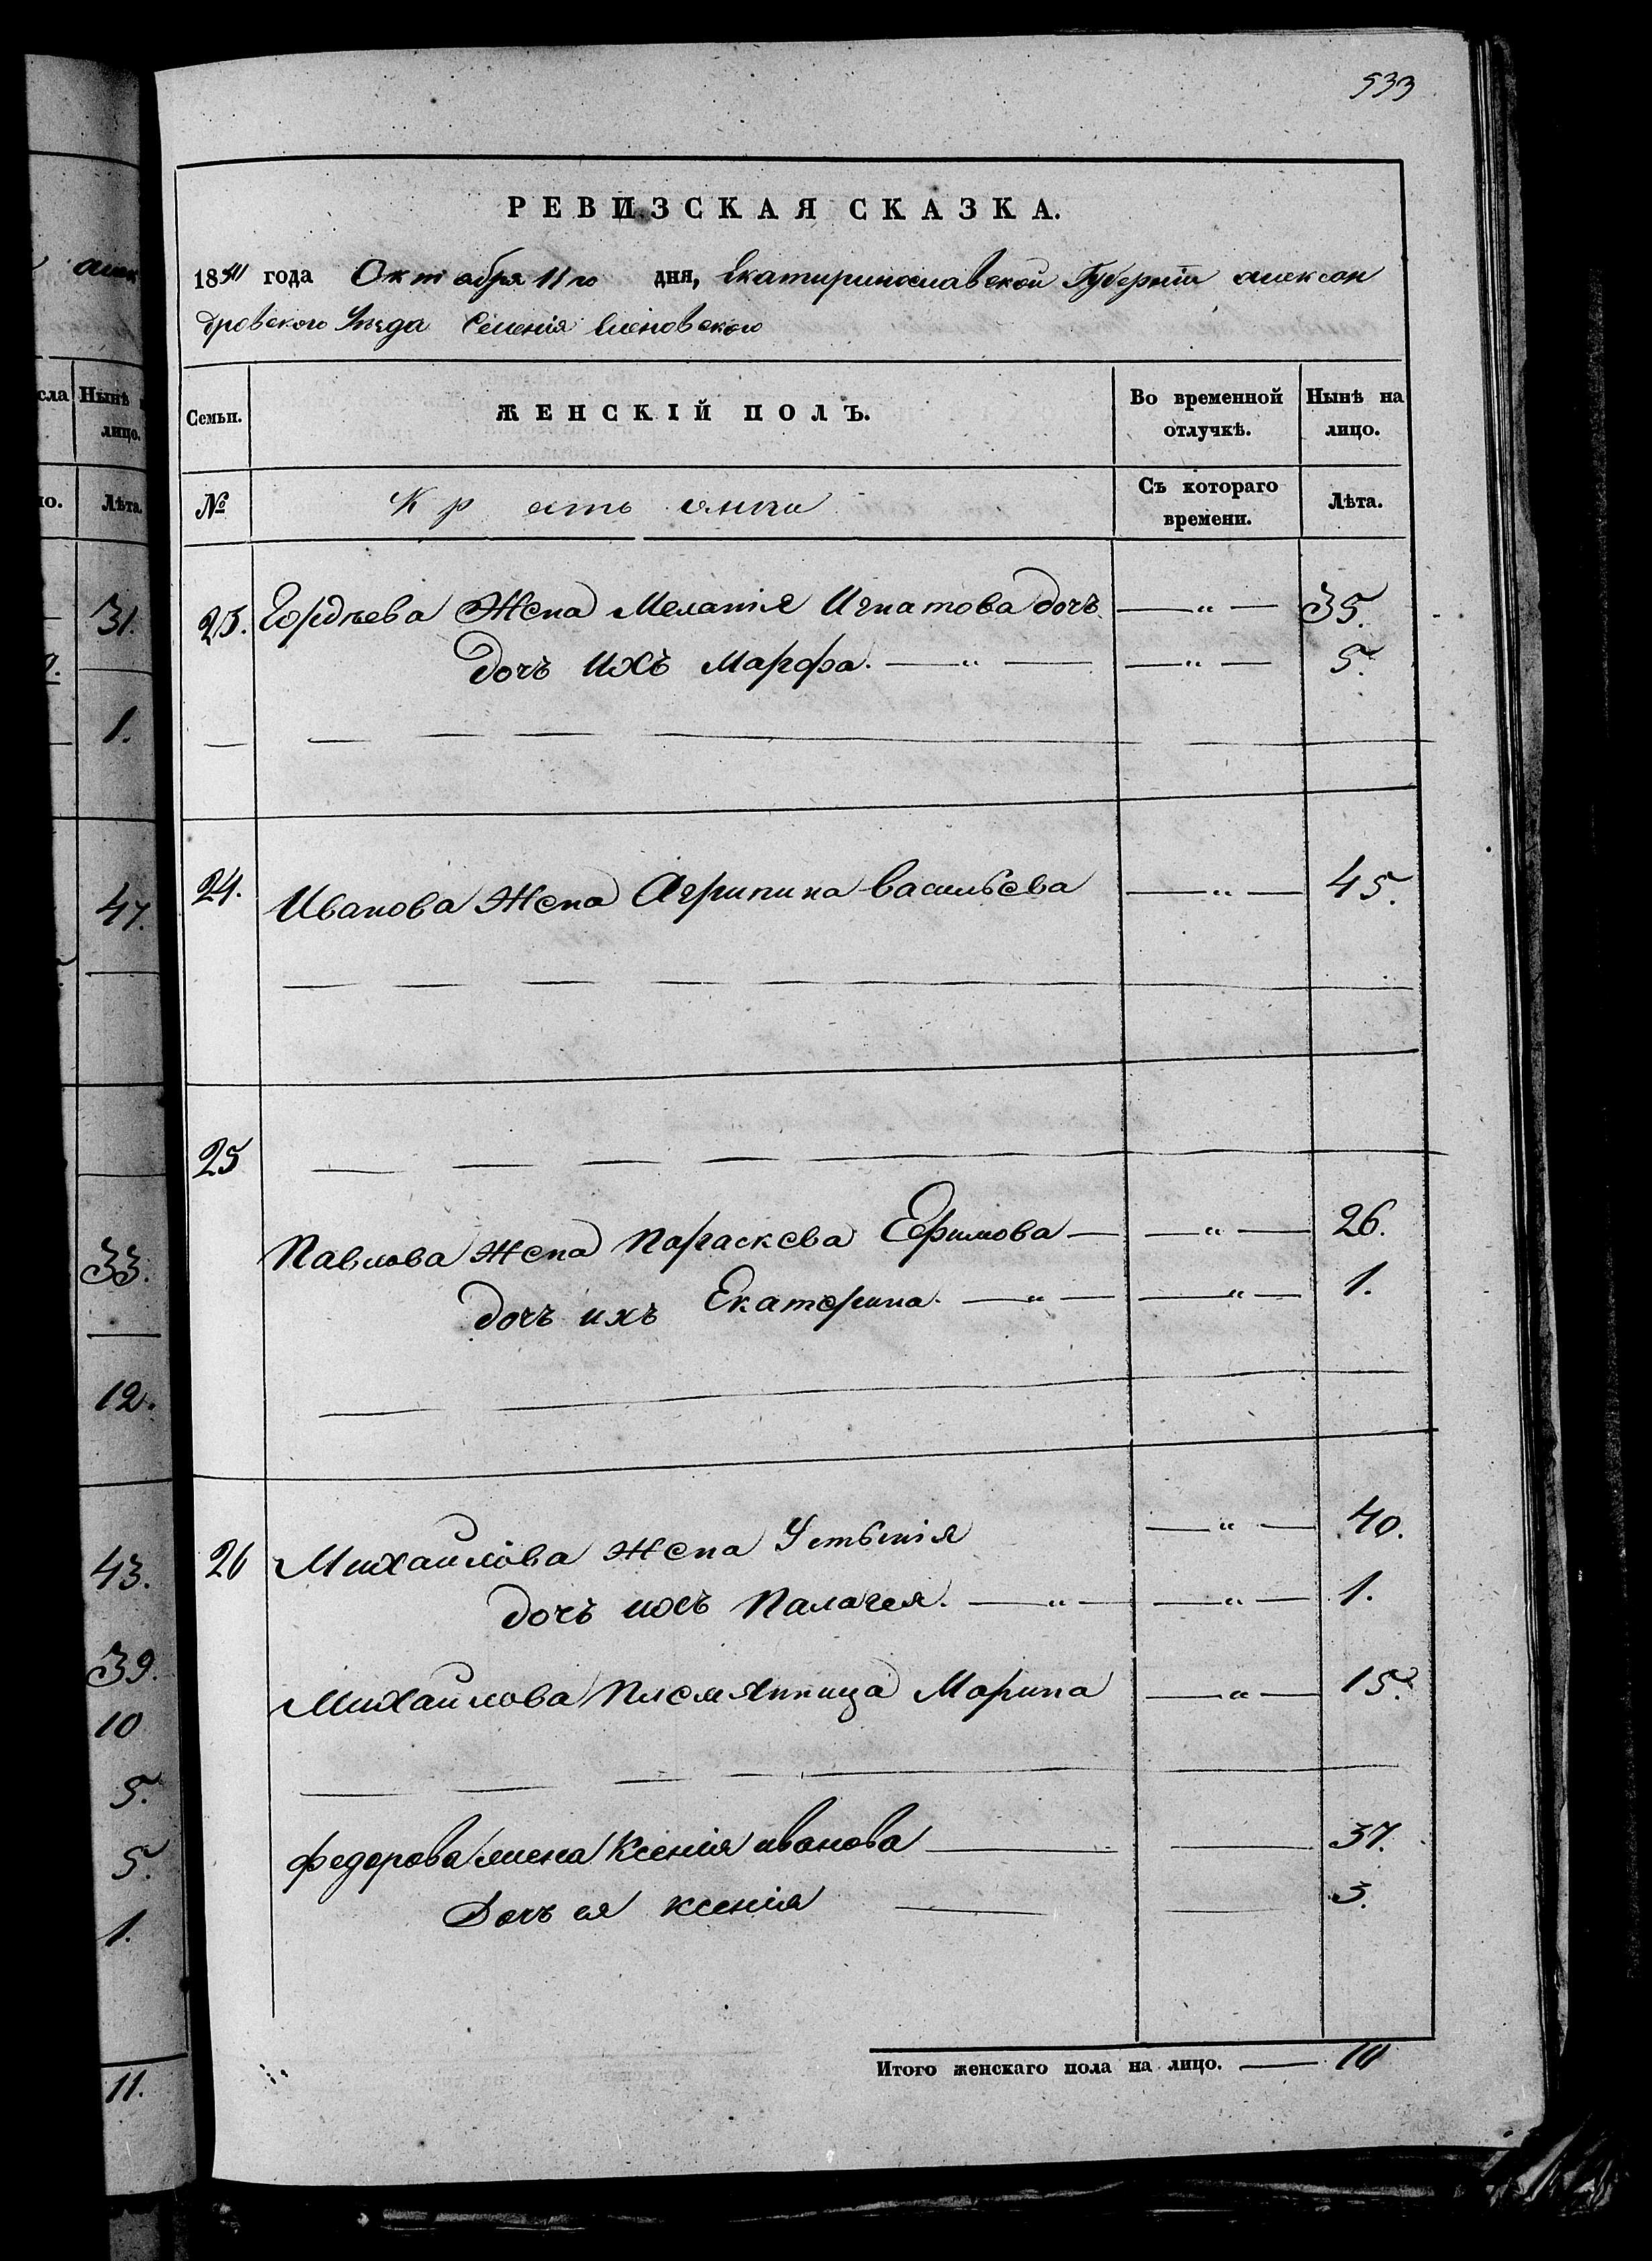 533
РЕВИЗСКАЯ СКАЗКА.
18 года Октября 11го дня, Екатиринославской Губернiи алексан
дровского Уезда Селенiя Еленовского
алек
сла Нынѣ
лицо.
Лѣта.
31.
1.
47.
33.
12.
43.
39.
10
5.
5.
1.
11.
Семьи. ЖЕНСКІЙ ПОЛЪ. Во временной отлучкѣ. Нынѣ на лицо.
№ Крестьянки Съ котораго времени. Лѣта.
23. Гордѣева Жена Меланiя Игнатова дочъ — " — 35.
дочъ ихъ Марфа. — " — — " — 5.
24. Иванова Жена Агрипина Васильева — " — 45.
25
Павлова Жена Параскева Ефимова — — " — 26.
дочъ ихъ Екатерина. — " — — " — 1.
26 Михаилова Жена Устинiя — " — 40.
дочъ ихъ Палагея. — " — — " — 1.
Михаилова Племянница Марина — " — 15.
Федорова жена Ксенiя иванова — — 37.
Дочъ ея ксенiя — — 3.
Итого женскаго пола на лицо. — 10